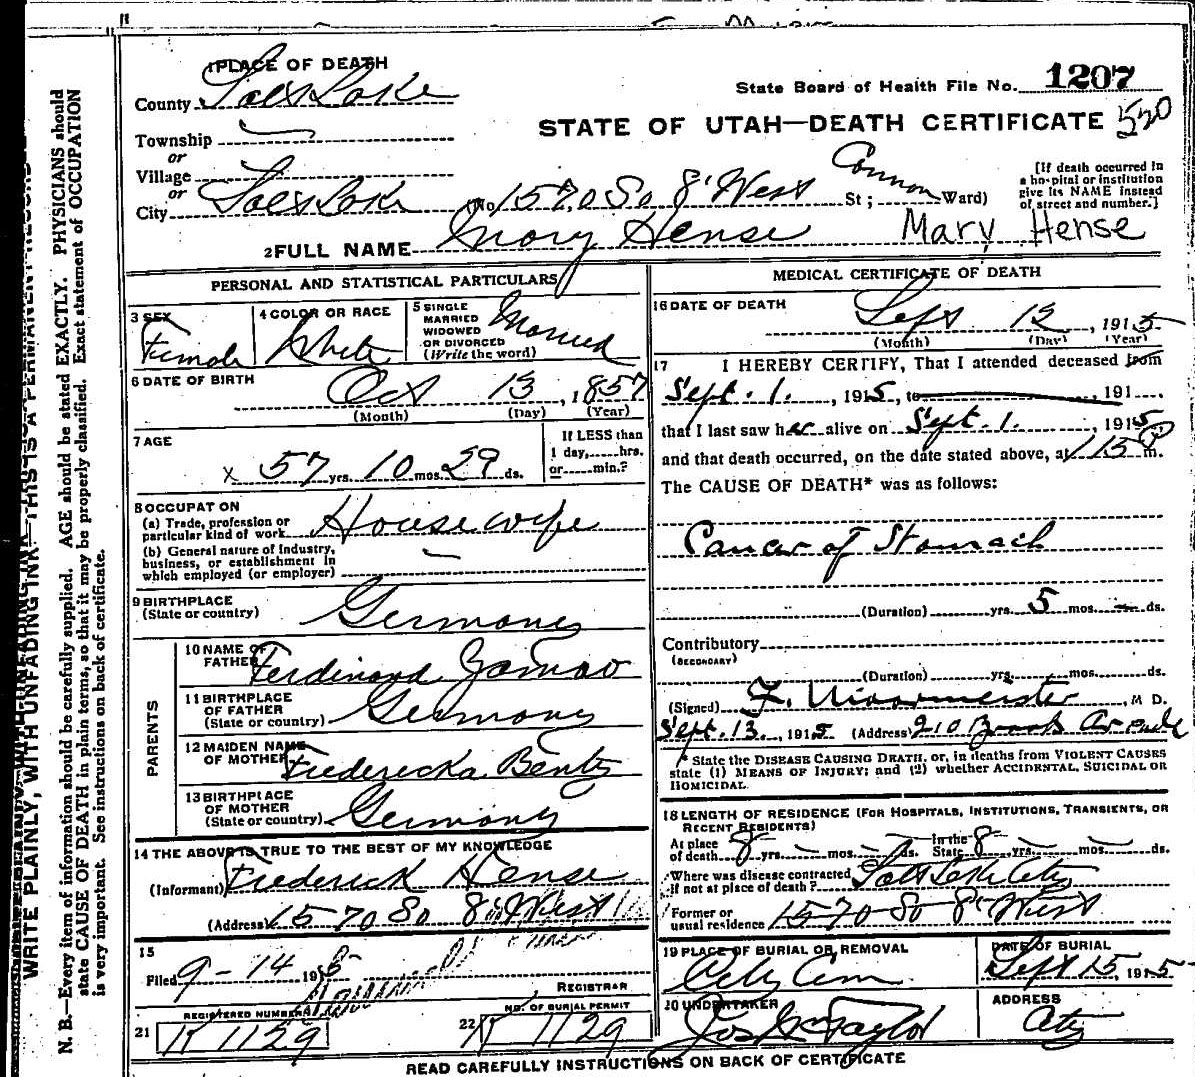 1 PLACE OF DEATH
County Salt Lake
State Board of Health File No. 1207
STATE OF UTAH—DEATH CERTIFICATE 520
Township
or
Village
or
City Salt Lake (No. 1570 So 8' West St; Cannon Ward)
[If death occurred in
a hospital or institution
give its NAME instead
of street and number.]
2 FULL NAME Mary Hense Mary Hense
PERSONAL AND STATISTICAL PARTICULARS
3 SEX Female
4 COLOR OR RACE White
5 SINGLE
MARRIED
WIDOWED
OR DIVORCED
(Write the word) Married
6 DATE OF BIRTH
Oct 13, 1857
(Month) (Day) (Year)
7 AGE
x 57 yrs. 10 mos. 29 ds.
If LESS than
1 day, hrs.
or min.?
8 OCCUPATON
(a) Trade, profession or
particular kind of work Housewife
(b) General nature of Industry,
business, or establishment in
which employed (or employer)
9 BIRTHPLACE
(State or country) Germany
PARENTS
10 NAME OF
FATHER Ferdinand
11 BIRTHPLACE
OF FATHER
(State or country) Germany
12 MAIDEN NAME
OF MOTHER Fredericka Bentz
13 BIRTHPLACE
OF MOTHER
(State or country) Germany
14 THE ABOVE IS TRUE TO THE BEST OF MY KNOWLEDGE
(Informant) Frederick Hense
(Address) 1570 So 8' West
15
Filed 9-14 1915
REGISTRAR
REGISTERED NUMBER
21 K 1129
NO. OF BURIAL PERMIT
22 K 1129
MEDICAL CERTIFICATE OF DEATH
16 DATE OF DEATH
Sept 12, 1915
(Month) (Day) (Year)
17 I HEREBY CERTIFY, That I attended deceased from
Sept. 1., 1915, to 191
that I last saw her alive on Sept. 1., 1915
and that death occurred, on the date stated above, at 115 P m.
The CAUSE OF DEATH* was as follows:
Cancer of Stomach
(Duration) yrs. 5 mos. — ds.
Contributory
(SECONDARY)
(Duration) yrs. mos. ds.
(Signed) F. M D.
Sept. 13., 1915 (Address) 210 Brooks Arcade
* State the DISEASE CAUSING DEATH, or, in deaths from VIOLENT CAUSES
state (1) MEANS OF INJURY; and (2) whether ACCIDENTAL, SUICIDAL OR
HOMICIDAL.
18 LENGTH OF RESIDENCE (FOR HOSPITALS, INSTITUTIONS, TRANSIENTS, OR
RECENT RESIDENTS)
At place
of death 8 yrs. — mos. — ds. In the
State 8 yrs. — mos. — ds.
Where was disease contracted
if not at place of death? Salt Lake City
Former or
usual residence 1570 So 8' West
19 PLACE OF BURIAL OR REMOVAL
City Cem
DATE OF BURIAL
Sept 15, 1915
20 UNDERTAKER
Jos Wm Taylor
ADDRESS
City
READ CAREFULLY INSTRUCTIONS ON BACK OF CERTIFICATE
WRITE PLAINLY, WITH UNFADING INK—THIS IS A PERMANENT RECORD
N. B.—Every item of information should be carefully supplied. AGE should be stated EXACTLY. PHYSICIANS should
state CAUSE OF DEATH in plain terms, so that it may be properly classified. Exact statement of OCCUPATION
is very important. See instructions on back of certificate.